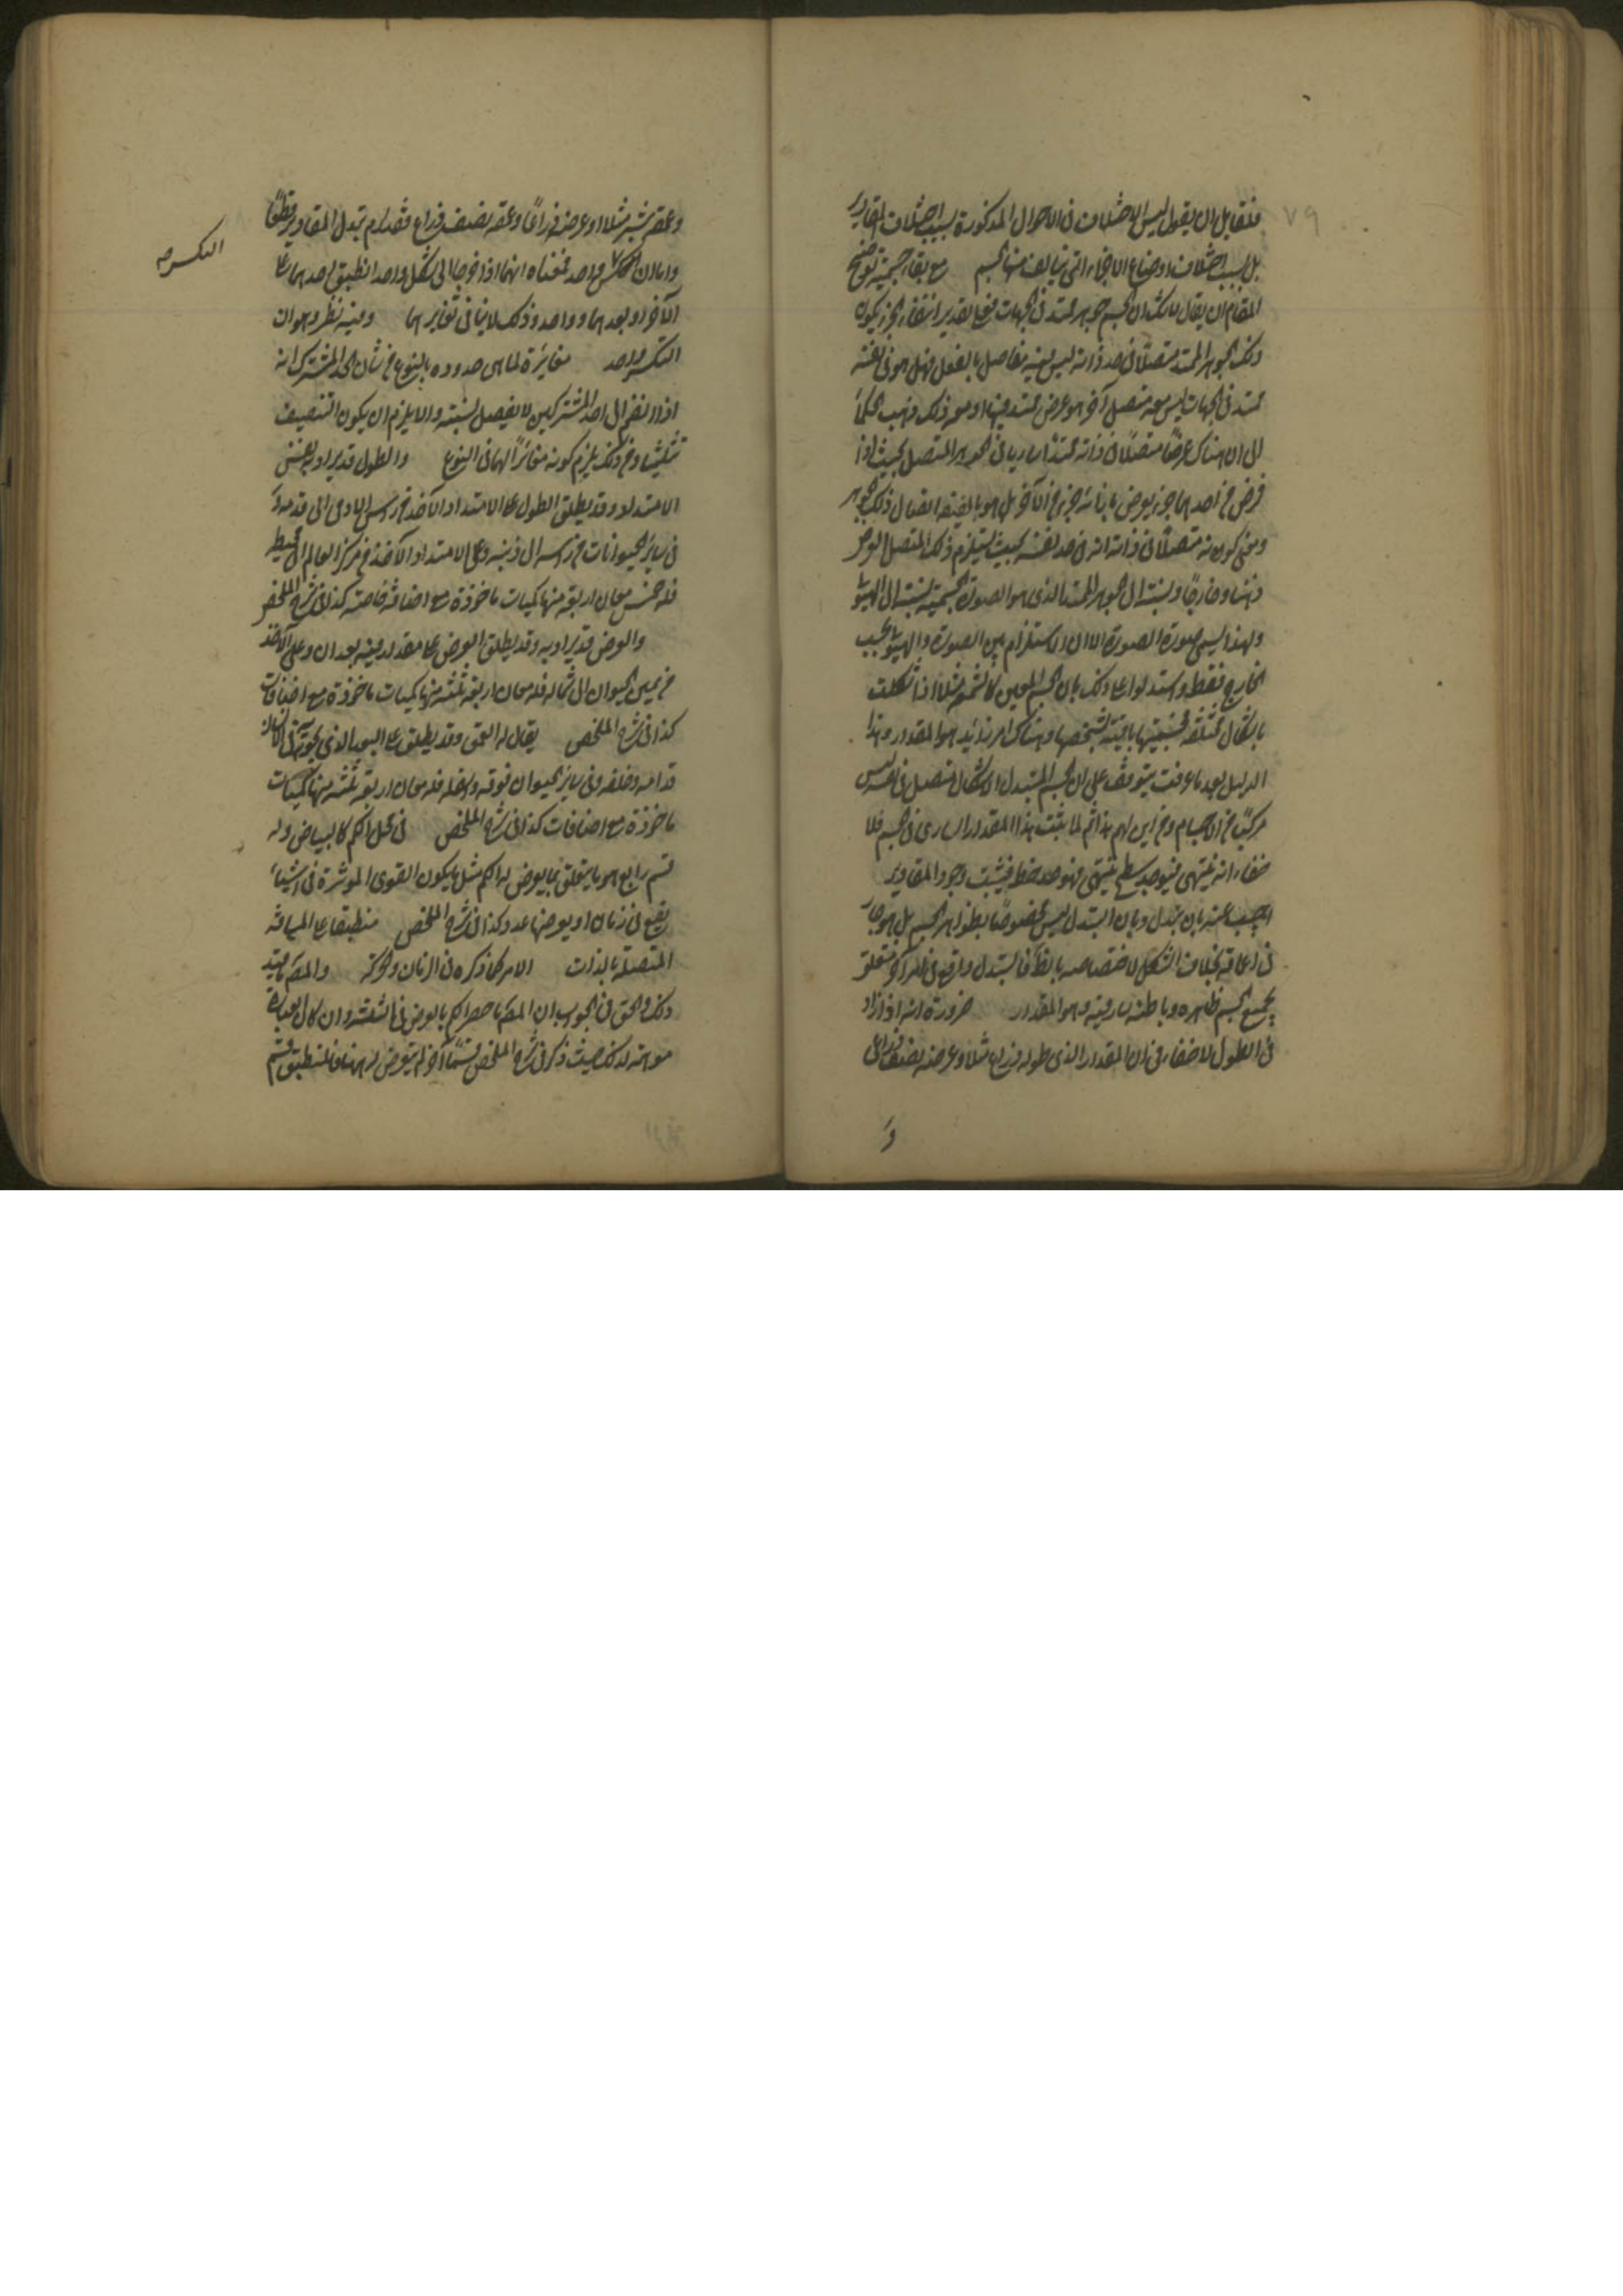 ٧٩
فلقايل ان يقول ليس الاختلاف فى الاحوال المذكورة بسبب اختلاف المقادير
بل بسبب اختلاف اوضاع الاجزاء التى يتالف منها الجسم مع بقاء جسمية توضيح
المقام ان يقال لا شك ان الجسم جوهر ممتد فى الجهات فع تقدير انتفاء الجزء يكون
ذلك الجوهر الممتد متصلا فى حد ذاته ليس فيه مفاصل بالفعل فهل هو فى نفسه
ممتد فى الجهات ليس معه متصل آخر هو عرض ممتد فيها او معه ذلك ذهب الحكما
الى ان هناك عرضًا متصلًا فى ذاته ممتدًا ساريا فى الجوهر المتصل بحيث اذا
فرض فى احدهما جزء يعرض بازائه جزء فى الآخر بل هو بالحقيقة اتصال ذلك الجوهر
ومعنى كونه متصلًا فى ذاته انه فى حد نفسه بحيث يستلزم ذلك المتصل العرض
ذهنا وخارجًا ونسبته الى الجوهر الممتد الذى هو الصورة الجسمية نسبته الى الهيولى
ولهذا يسمى صورة الصورة الا ان الاستلزام بين الصورة والهيولى بحسب
الخارج فقط واستدلوا على ذلك بان الجسم المعين كالشمع مثلًا اذا شكلت
باشكال مختلفة فجسميتها باقية بشخصها وهناك امر زايد هو المقدار وهذا
الدليل بعد ما عرفت يتوقف على ان الجسم المتبدل الاشكال متصل فى نفسه ليس
مركبًا من الاجسام ومن اين لهم هذا ثم لما ثبت هذا المقدار السارى فى الجسم فلا
خفاء انه ينتهى فيوجد سطح ينتهى فهو حد خط فيثبت وجود المقادير
اجيب عنه بان يتبدل وبان التبدل ليس مخصوصًا بظواهر الجسم بل هو جار
فى اعماقه بخلاف الشكل لاختصاصه بالظ فالتبدل واقع فى امر آخر متعلق
بجميع الجسم ظاهره وباطنه سار فيه وهو المقدار ضرورة انه اذا زاد
فى الطول لا خفاء فى ان المقدار الذى طوله ذراع مثلا وعرضه نصف ذراع
و
وعمقه شبر مثلا او عرضه ذراعًا وعمقه نصف ذراع فقد لزم تبدل المقادير قطعًا
واحد فمعناه انهما اذا خرجا الى شكل واحد انطبق احدهما على
الآخر او بعدهما وواحد وذلك لا ينافى تغايرهما وفيه نظر وهو ان
التكسر واحد مغايرة لما هى حدوده بالنوع من شان الحد المشترك انه
اذا انضم الى احد المشتركين لا يفصل بنسبته والا يلزم ان يكون التنصيف
تثليثا ومن ذلك يلزم كونه مغايرًا لهما فى النوع والطول قد يراد به نفس
الامتداد وقد يطلق الطول على الامتداد الآخذ من راس الادمى الى قدمه و
فى ساير الحيوانات من راسه الى ذنبه وعلى الامتداد الآخذ من مركز العالم الى محيطه
فله خمس معان اربعة منها كميات ماخوذة مع اضافة خاصة كذا فى شرح الملخص
والعرض قد يراد به وقد يطلق العرض على مقدار فيه بعدان وعلى الآخذ
من يمين الحيوان الى شماله فله معان اربعة ثلثة منها كميات ماخوذة مع اضافات
كذا فى شرح الملخص يقال له العمق وقد يطلق على البعد الذى يحويه فى الانسان
قدامه وخلفه وفى ساير الحيوان فوقه واسفله فله معان اربعة ثلثة منها كميات
ماخوذة مع اضافات كذا فى شرح الملخص فى محل الكم كالبياض وله
قسم رابع هو ما يتعلق بما يعرض له الكم مثل ما يكون القوى الموثرة فى اشياء
يقع فى زمان او يعرضها عدد كذا فى شرح الملخص منطبقا على المسافة
المتصلة بالذات الامر كما ذكره فى الزمان والحركة والمص ما قيد
ذلك والحق فى الجواب ان المص ما حصر الكم بالعرض فى الثلثة وان كان العبارة
موهمة لذلك حيث ذكر فى شرح الملخص قسمًا آخر لم يتعرض له هنا فالمنطبق قسم
التكسر